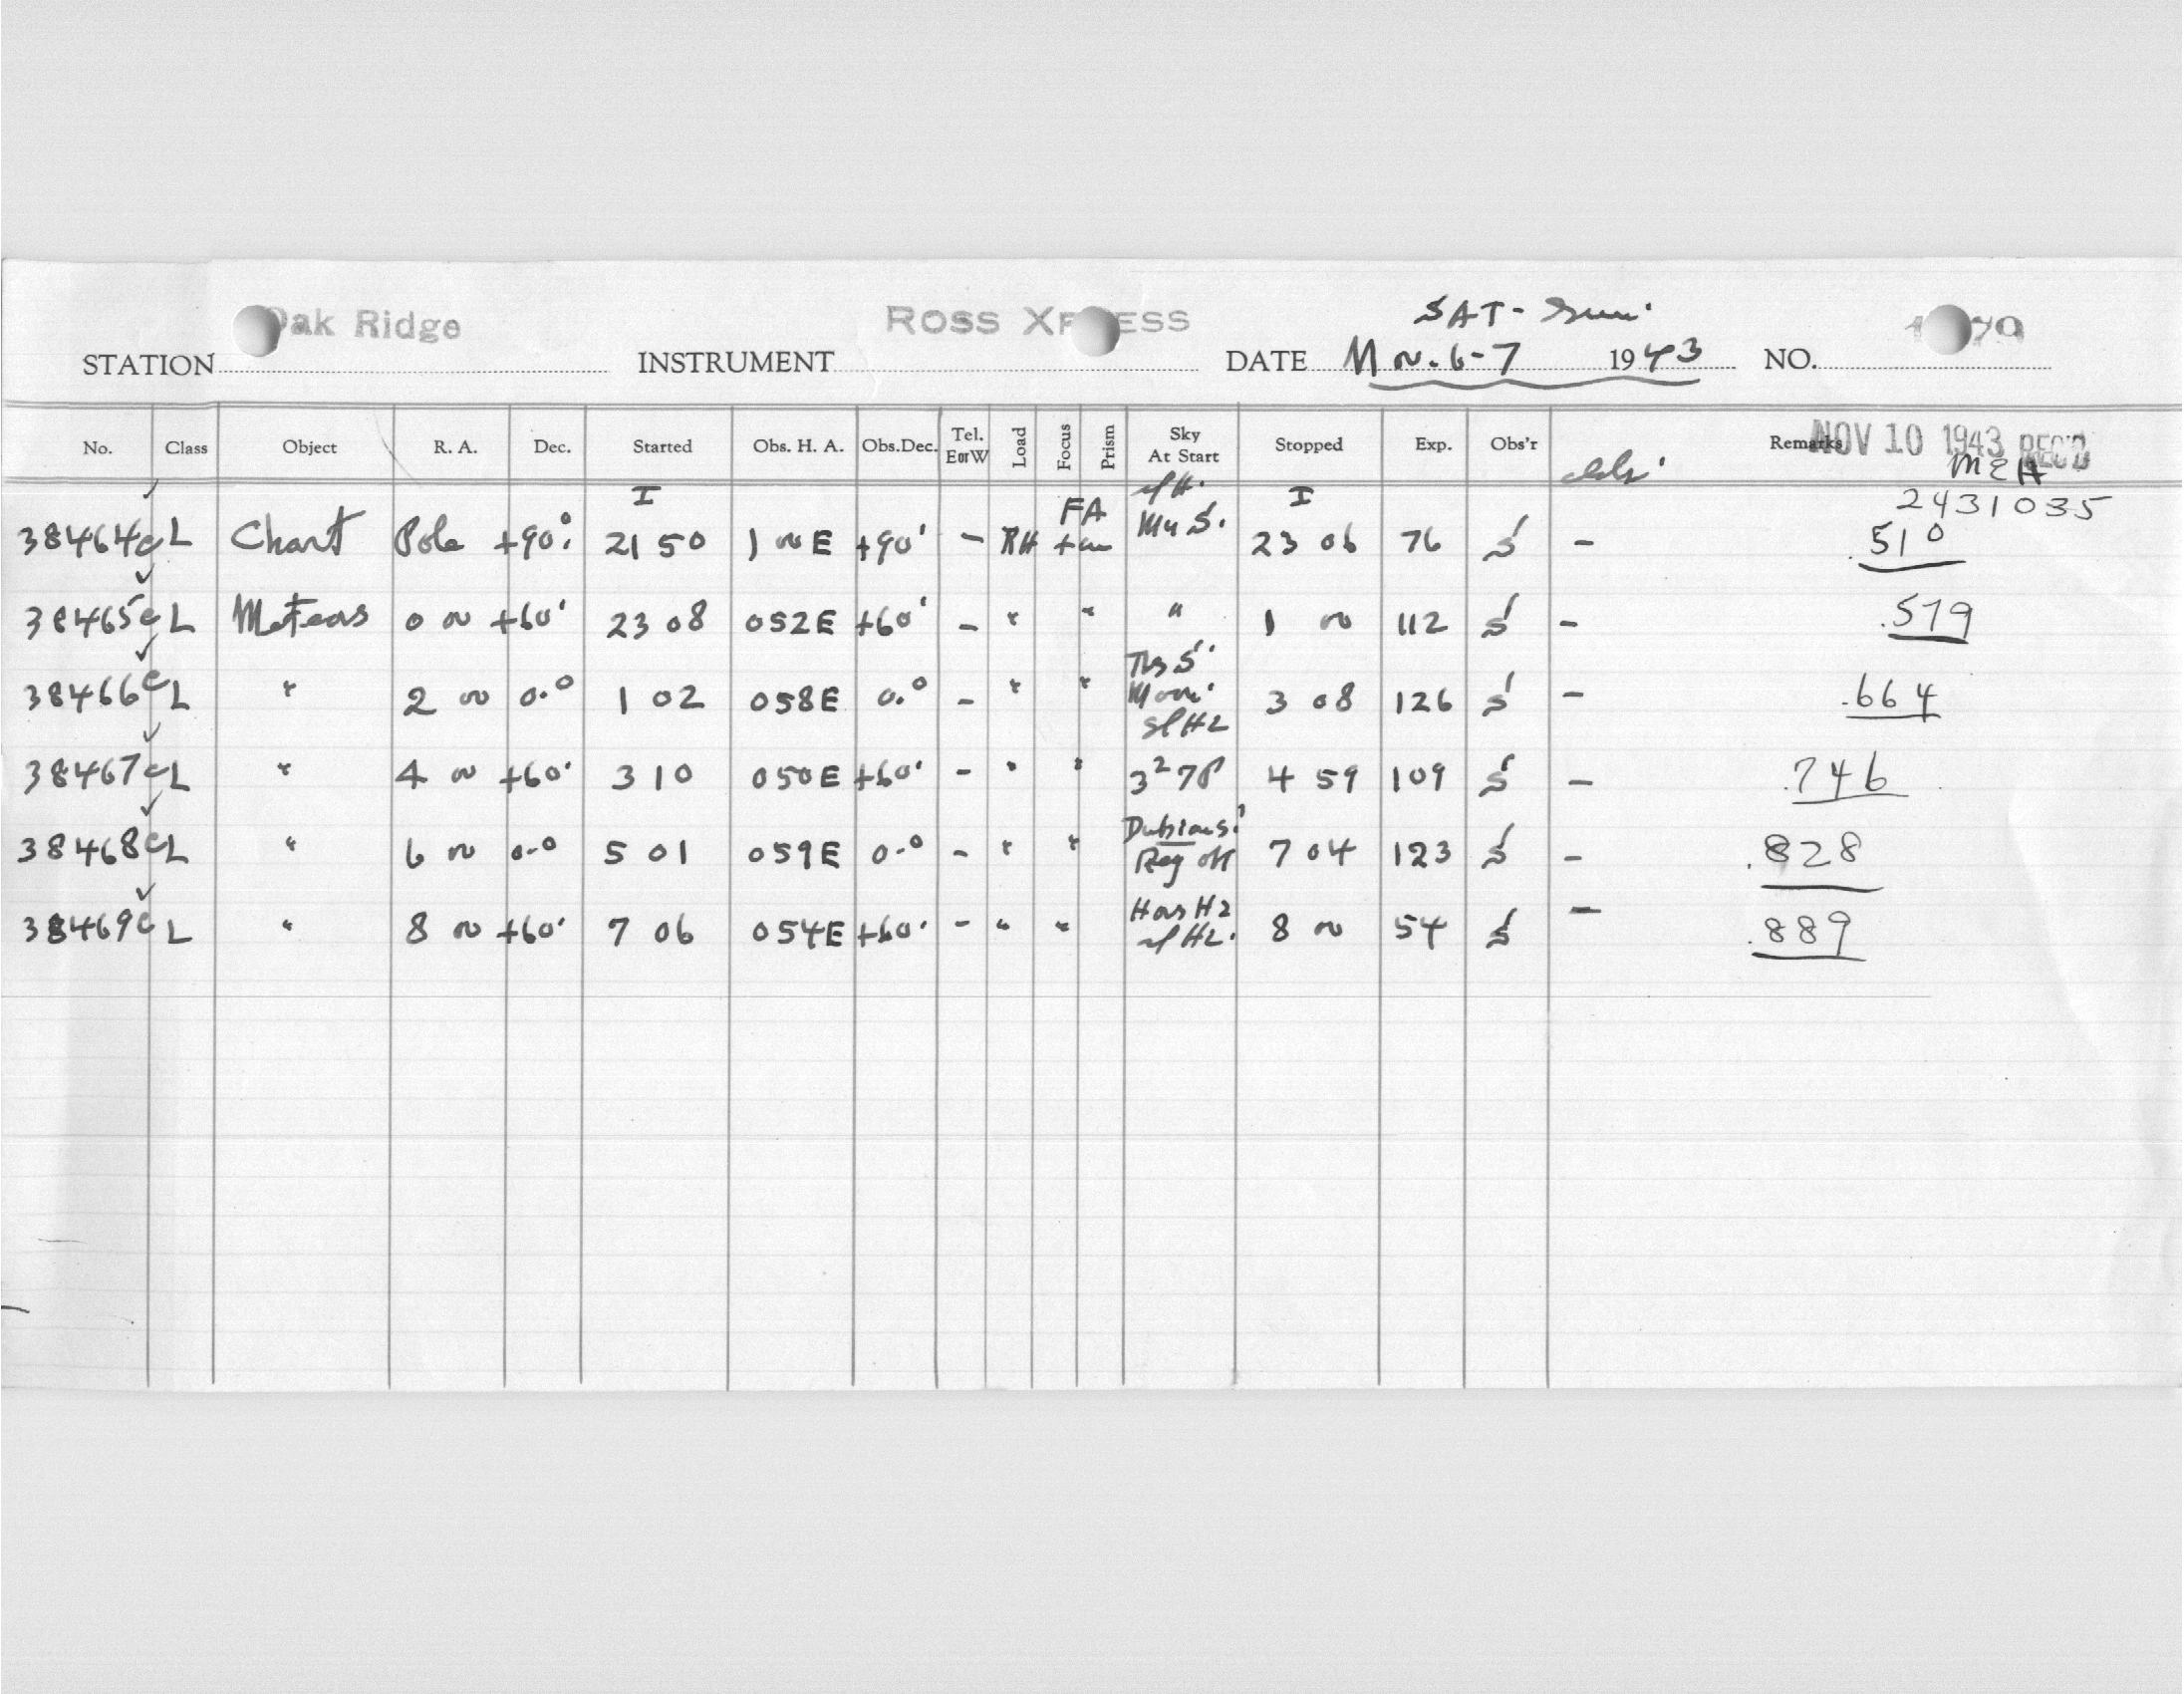 Oak Ridge ROSS XPRESS SAT - Sun.
STATION INSTRUMENT DATE Nov. 6-7 1943 NO.
No. Class Object R. A. Dec. Started Obs. H. A. Obs.Dec. Tel. E or W Load Focus Prism Sky At Start Stopped Exp. Obs'r Remarks
NOV 10 1943 REC'D
MEH
2431035
I FA I
38464c L Chart Pole +90° 21 50 1 00 E +90° - RH 23 06 76 S - .510
38465c L Meteors 0 00 +60° 23 08 0 52 E +60° - " " " 1 00 112 S - .579
38466c L " 2 00 0.° 1 02 0 58 E 0.° - " " 3 08 126 S - .664
38467c L " 4 00 +60° 3 10 0 50 E +60° - " " 4 59 109 S - .746
38468c L " 6 00 0.° 5 01 0 59 E 0.° - " " Dubious. 7 04 123 S - .828
38469c L " 8 00 +60° 7 06 0 54 E +60° - " " 8 00 54 S - .889